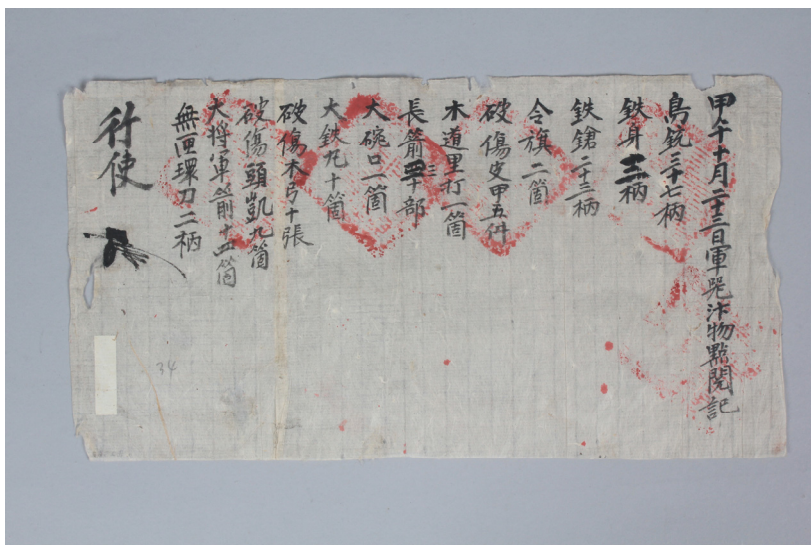 甲午十月二十三日軍器汁物點閱記
鳥銃三十七柄
鉄身三柄
鉄鎗二十三柄
令旗二箇
破傷皮甲五件
木道里打一箇
長箭三十部
大碗口一箇
大鉄丸十箇
破傷木弓十張
破傷頭凱九箇
大将軍箭十五箇
無匣環刀二柄
行使
34